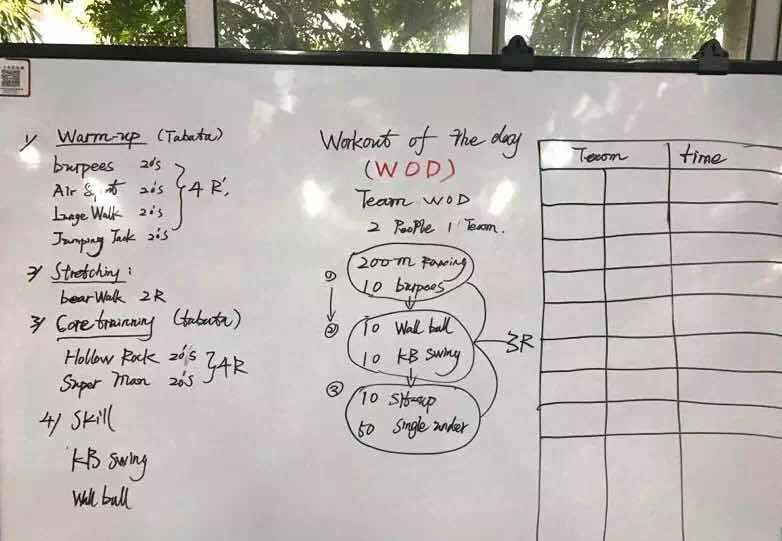 1/ Warm-up (Tabata)
burpees 20's
Air 20's
Lunge Walk 20's
Jumping Jack 20's
} 4 R'.
2/ Stretching:
bear Walk 2R
3/ Core trainning (tabata)
Hollow Rock 20's
Super Man 20's
} 4R
4/ Skill
KB swing
Wall ball
Workout of the day
(WOD)
Team WOD
2 People 1 Team.
① 200m
10 burpees
② 10 Wall ball
10 KB swing
3R
③ 10 sit-up
50 single under
Team time